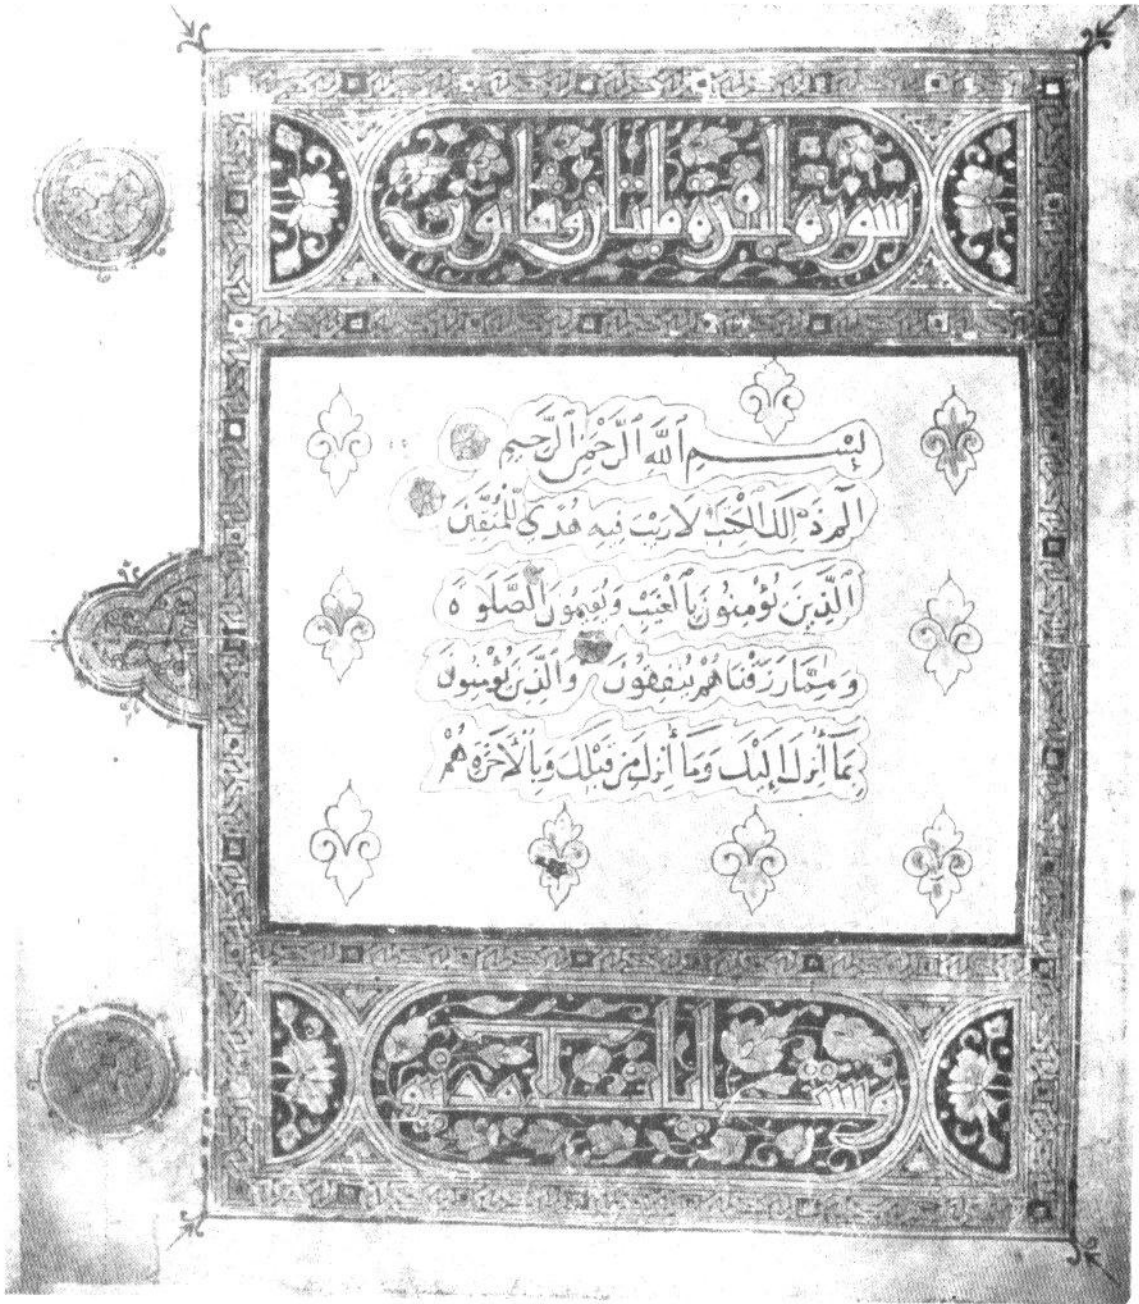 سوره البقره مايتان وثمانون
بِسْمِ ٱللَّهِ ٱلرَّحْمَٰنِ ٱلرَّحِيمِ
الٓمٓ ذَٰلِكَ ٱلْكِتَٰبُ لَا رَيْبَ فِيهِ هُدًى لِّلْمُتَّقِينَ
ٱلَّذِينَ يُؤْمِنُونَ بِٱلْغَيْبِ وَيُقِيمُونَ ٱلصَّلَوٰةَ
وَمِمَّا رَزَقْنَاهُمْ يُنْفِقُونَ وَٱلَّذِينَ يُؤْمِنُونَ
بِمَا أُنْزِلَ إِلَيْكَ وَمَا أُنْزِلَ مِنْ قَبْلِكَ وَبِٱلْأَخِرَةِ هُمْ